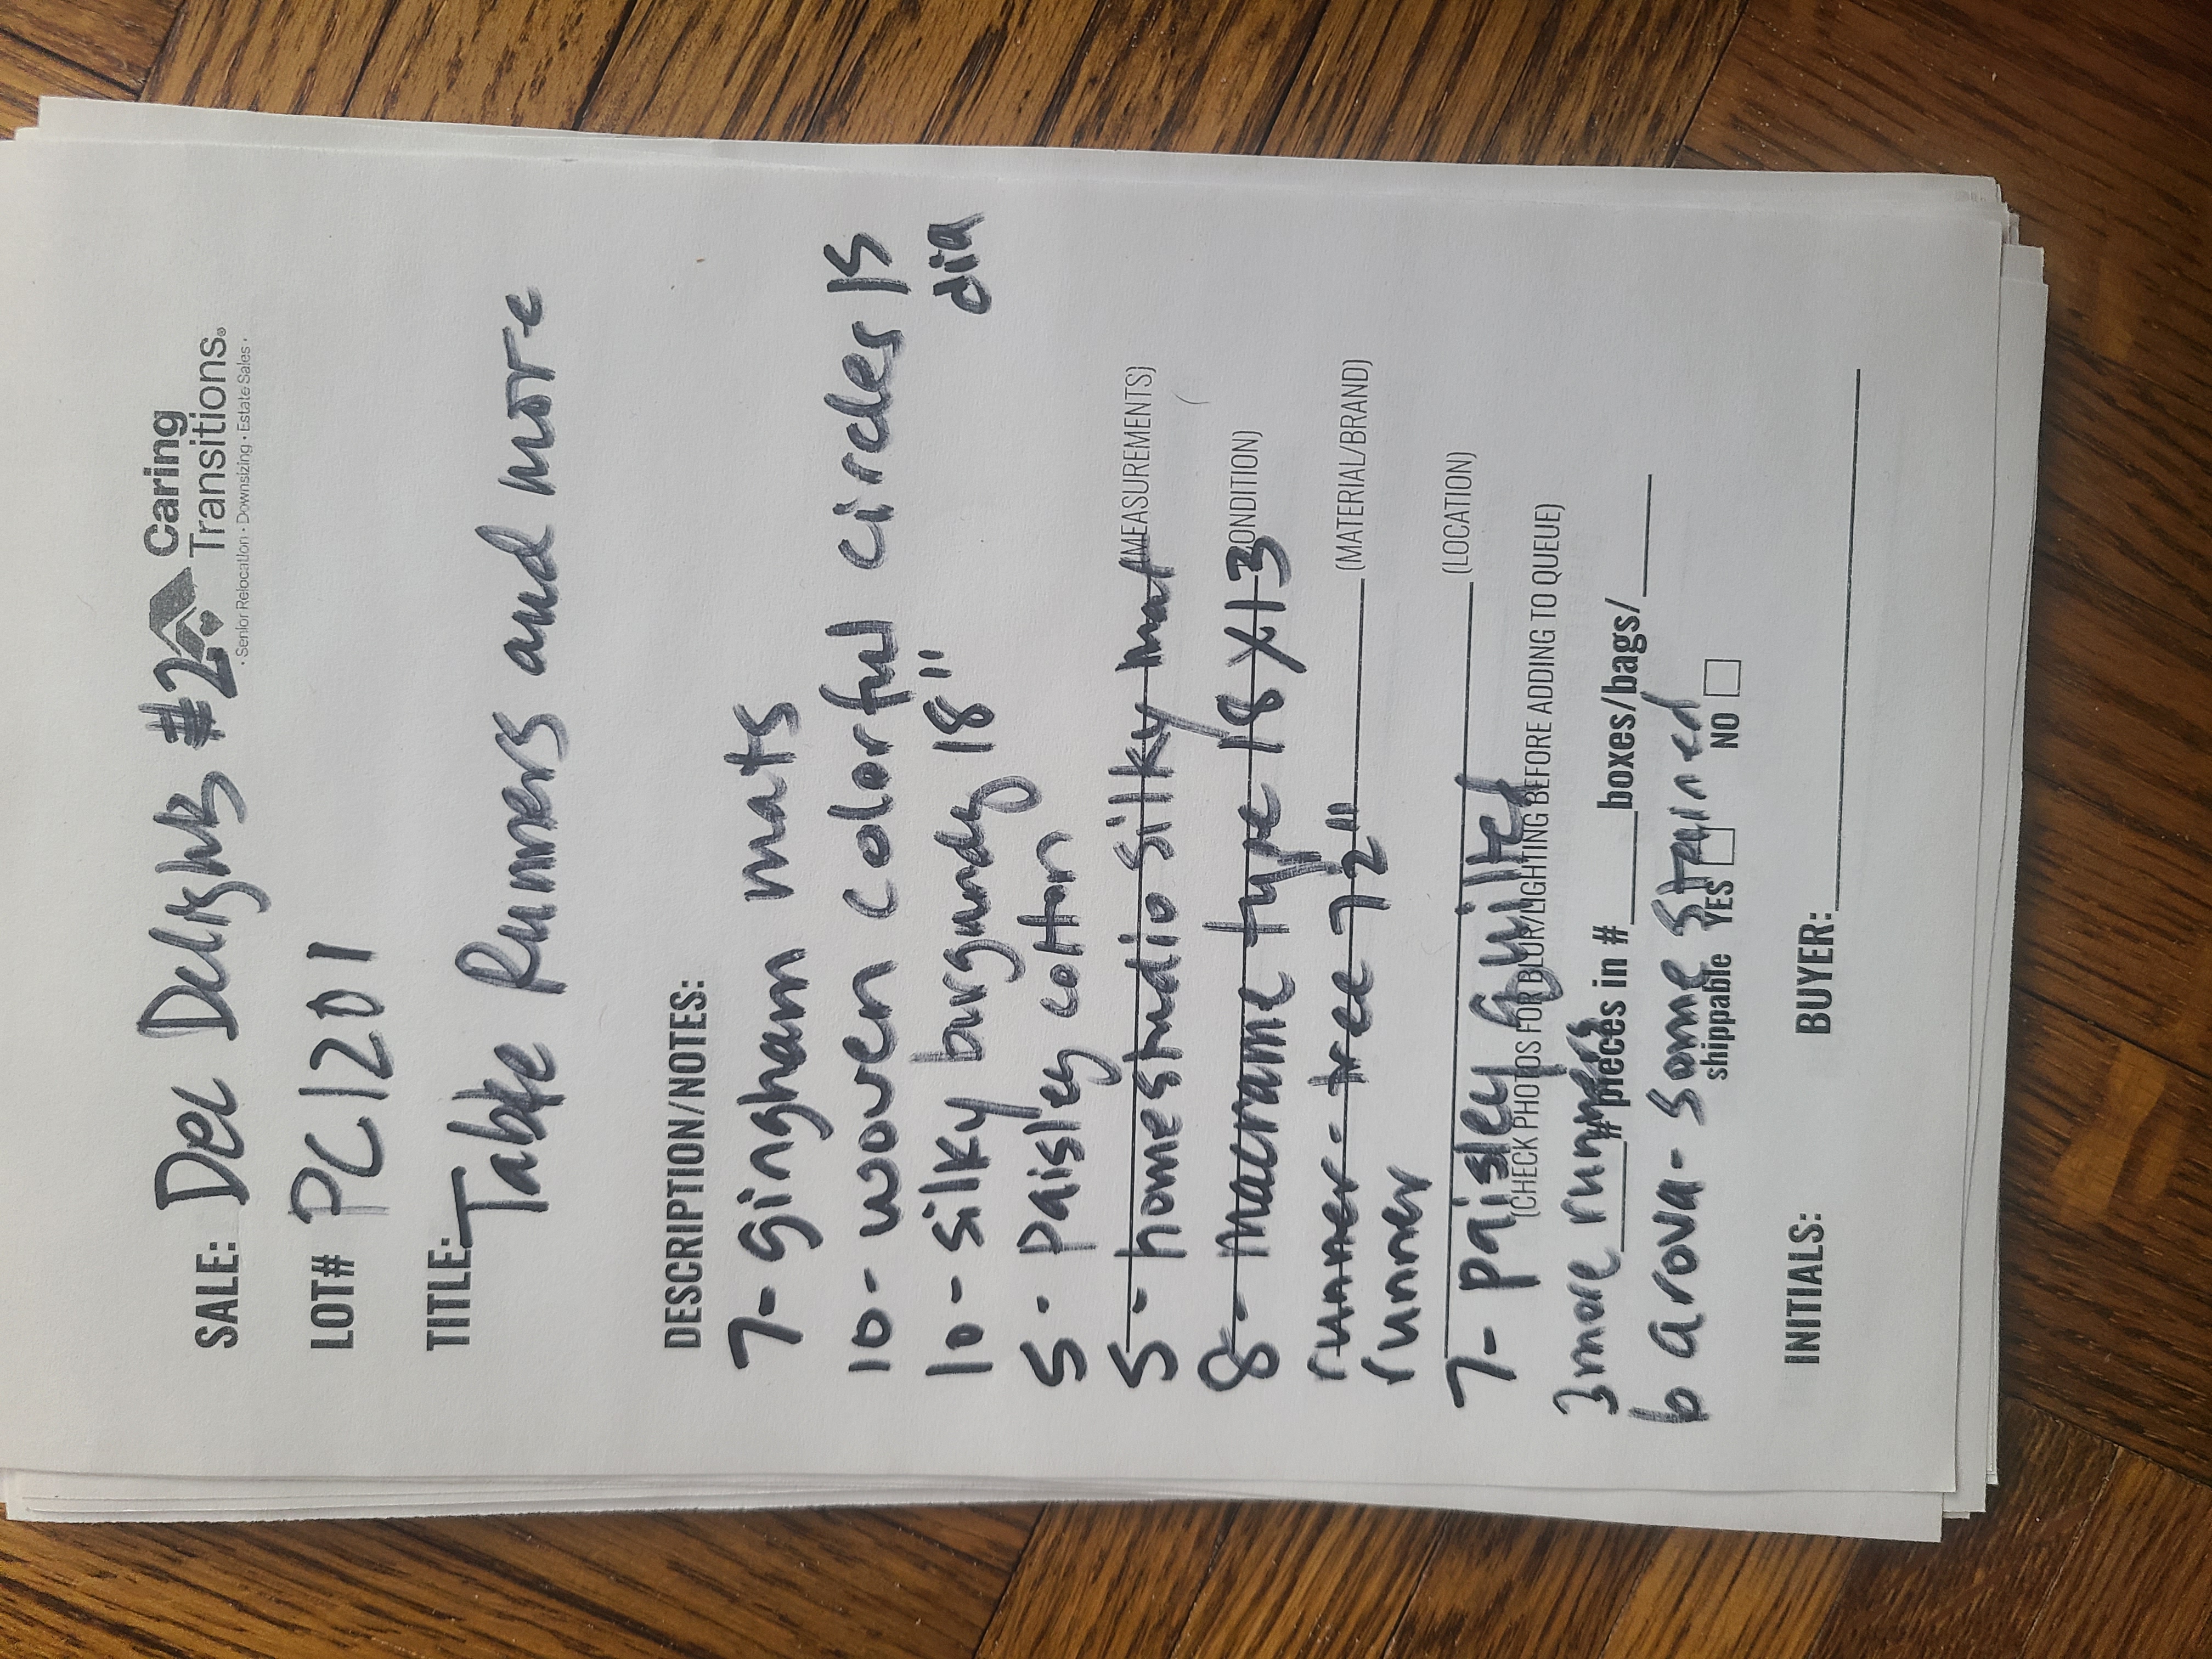 Caring
Transitions®
• Senior Relocation • Downsizing • Estate Sales •
SALE: Del Delights #2
LOT# PC1201
TITLE: Table Runners and more
DESCRIPTION/NOTES:
7 - gingham mats
10 - woven colorful circles 15
dia
10 - silky burgundy 18"
5 - paisley cotton
5 - homestudio silky mat (MEASUREMENTS)
8 - macrame type 18 x 13 (CONDITION)
runner - tree 72" (MATERIAL/BRAND)
runner
7 - paisley quilted (LOCATION)
(CHECK PHOTOS FOR BLUR/LIGHTING BEFORE ADDING TO QUEUE)
3 more runners
#pieces in # boxes/bags/
6 arova - some stained
shippable YES NO
INITIALS: BUYER: